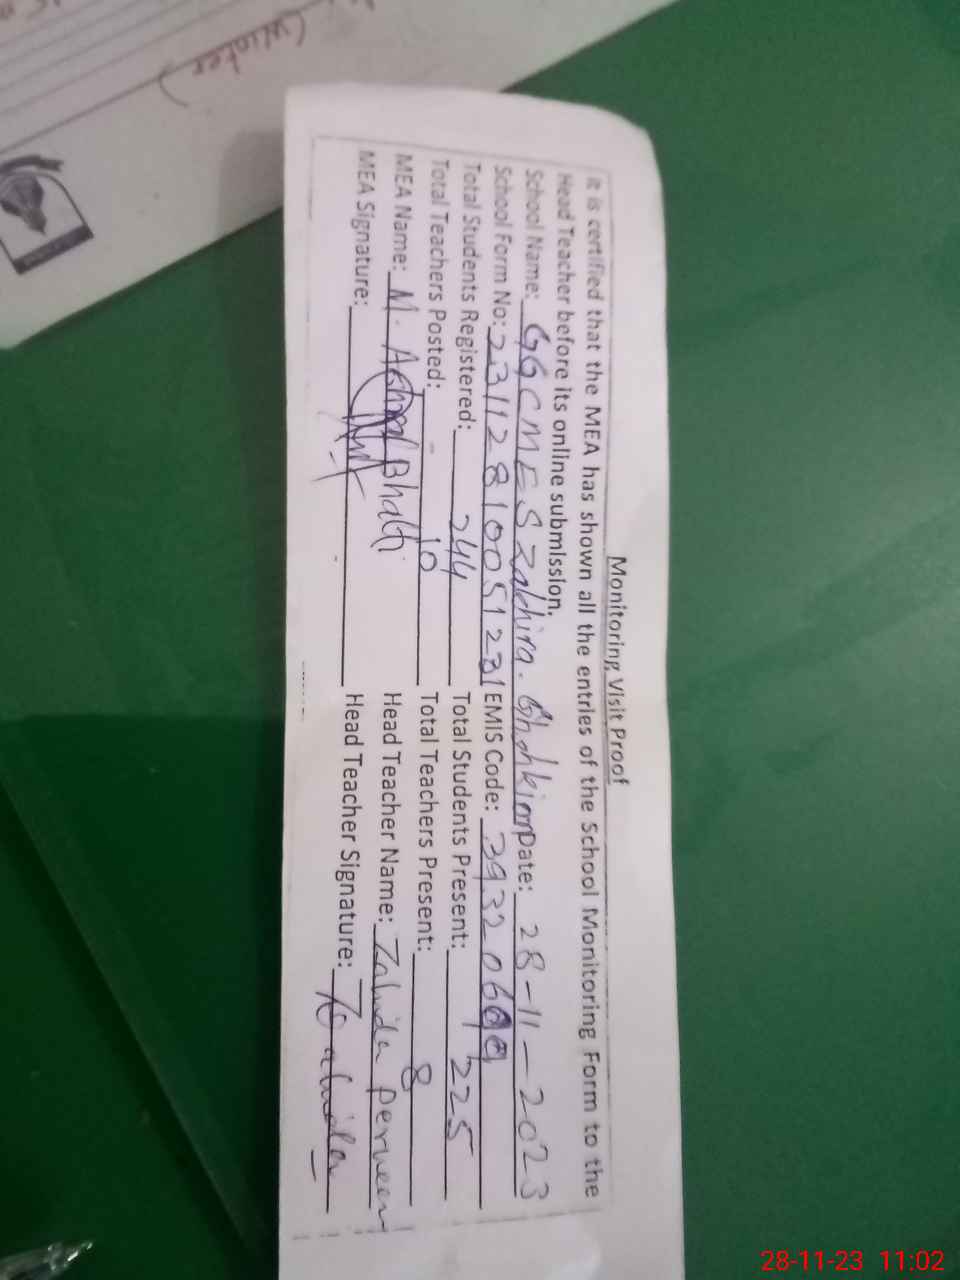 (winter)
Monitoring Visit Proof
It is certified that the MEA has shown all the entries of the School Monitoring Form to the
Head Teacher before its online submission.
School Name: GGCMES Zakhira. Date: 28-11-2023
School Form No: 23112810051231 EMIS Code: 393206
Total Students Registered: 244 Total Students Present: 225
Total Teachers Posted: 10 Total Teachers Present: 8
MEA Name: M. Bhatti Head Teacher Name: Zahida Perveen
MEA Signature: Head Teacher Signature: Zahida
28-11-23 11:02